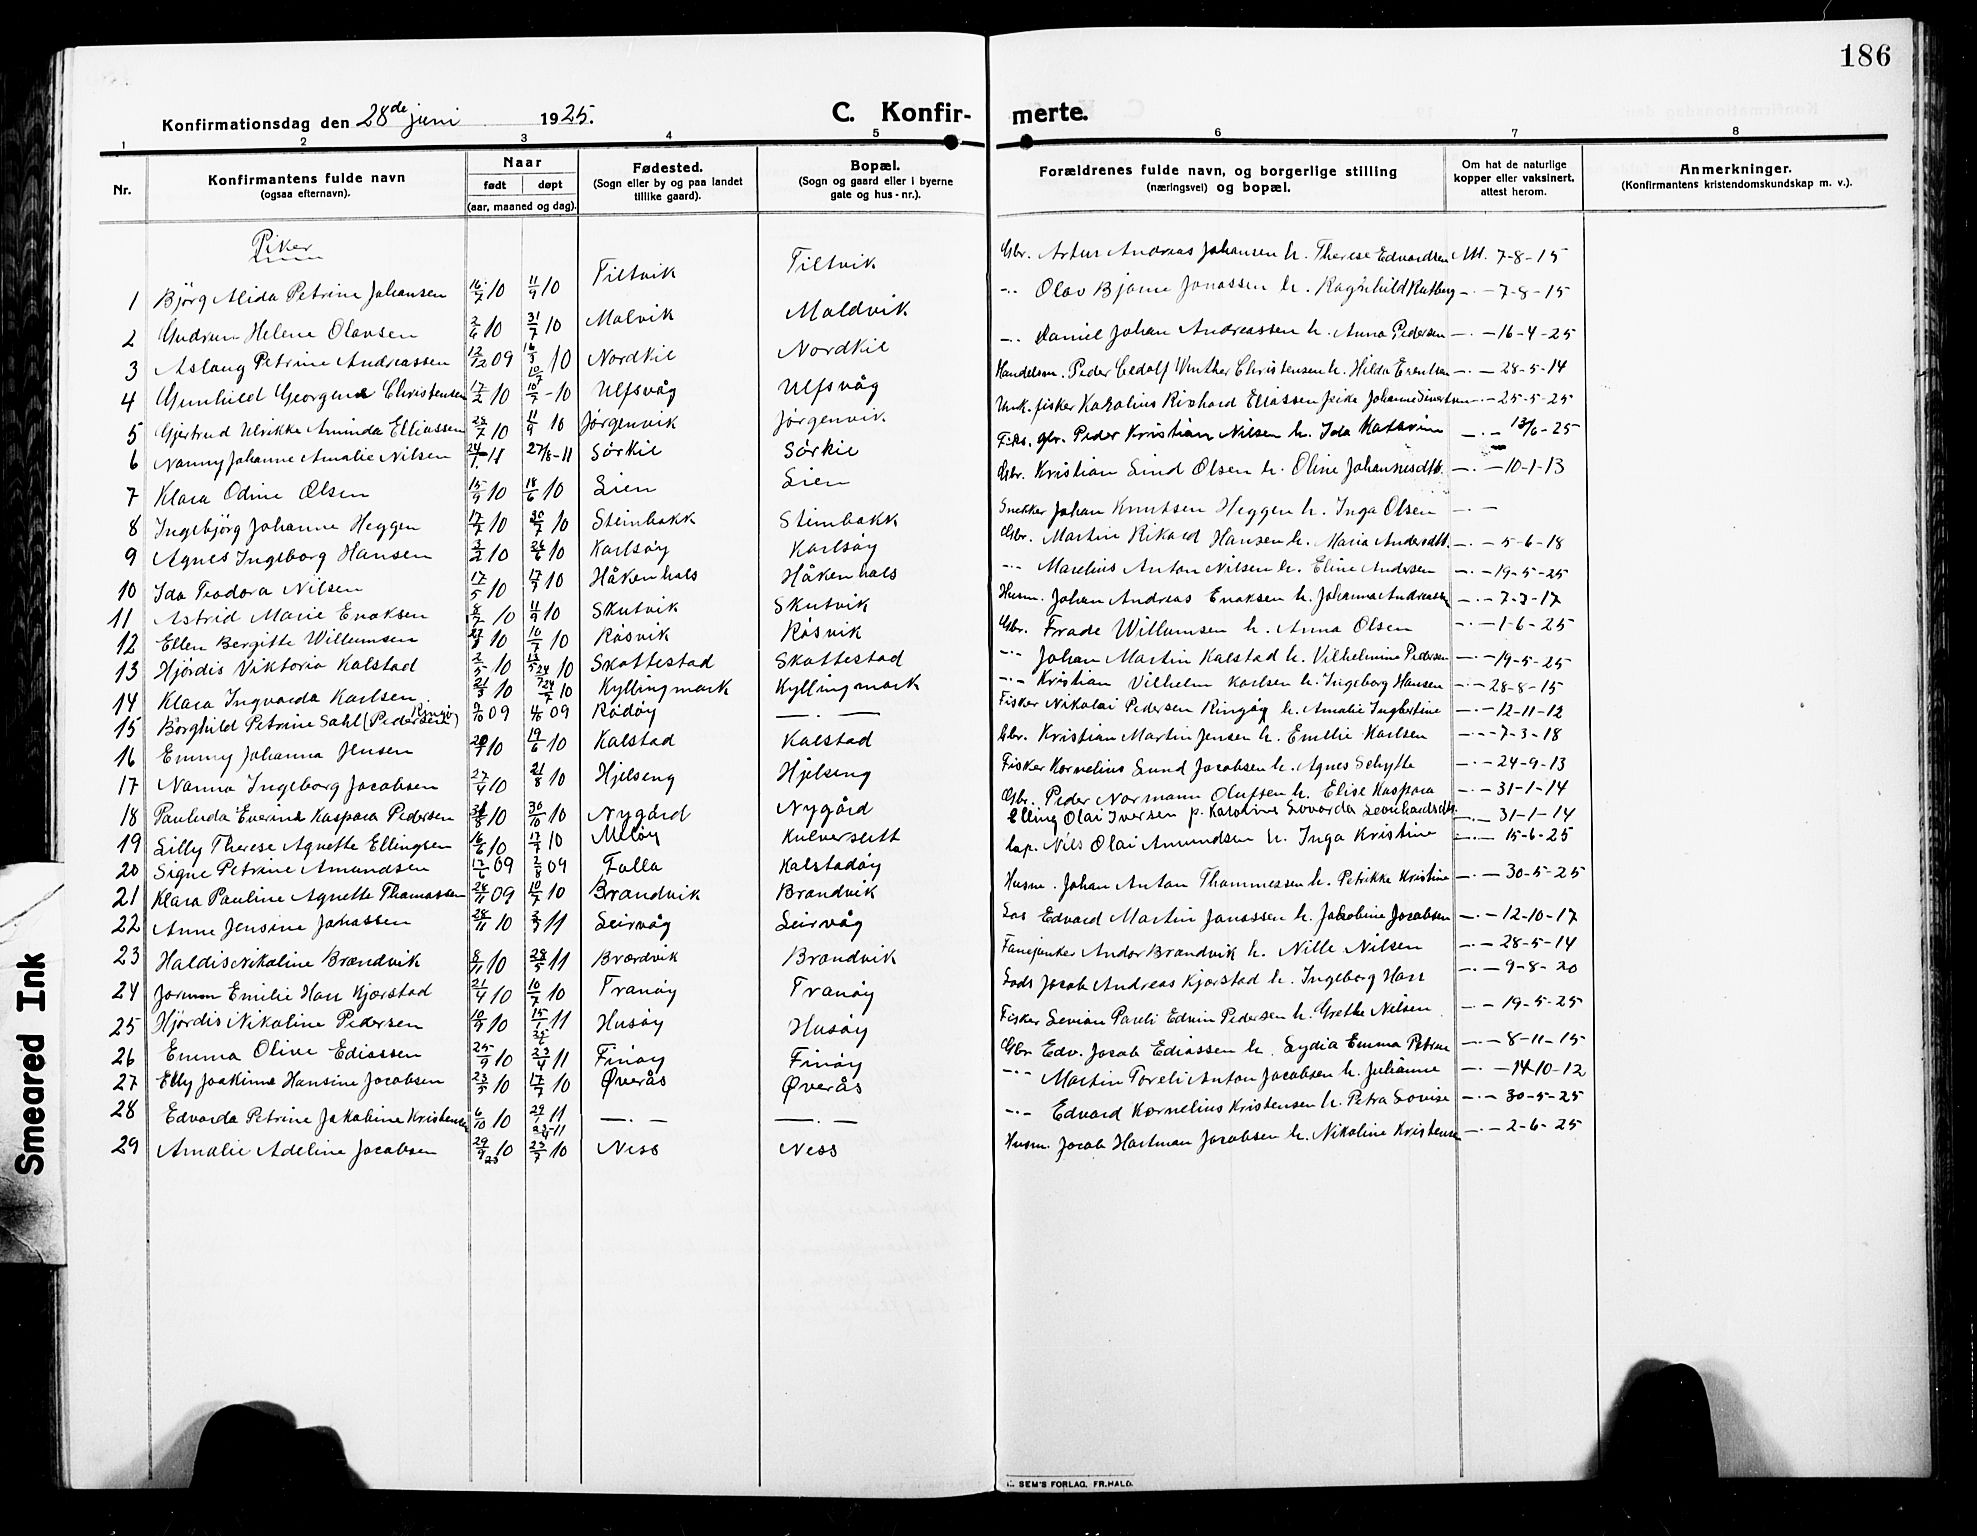 186
Konfirmationsdag den 28de juni 1925.
C. Konfir-
merte.
1 2 3 4 5 6 7 8
Nr.
Konfirmantens fulde navn
(ogsaa efternavn).
Naar
født døpt
(aar, maaned og dag).
Fødested.
(Sogn eller by og paa landet
tillike gaard).
Bopæl.
(Sogn og gaard eller i byerne
gate og hus-nr.).
Forældrenes fulde navn, og borgerlige stilling
(næringsvei) og bopæl.
Om hat de naturlige
kopper eller vaksinert,
attest herom.
Anmerkninger.
(Konfirmantens kristendomskundskap m. v.).
Piker
1 Bjørg Alida Petrine Johansen 16/7 10 11/9 10 Tiltvik Tiltvik Gbr. Artur Andreas Johansen h. Therese Edvardsen Att. 7-8-15
2 Gudrun Helene Olavsen 2/6 10 31/7 10 Malvik Maldvik -·- Olav Bjarne Jonassen h. Ragnhild -·- 7-8-15
3 Aslaug Petrine Andreassen 12/12 09 10 Nordkil Nordkil -·- Daniel Johan Andreassen h. Anna Pedersen -·- 16-4-25
4 Gunhild Georgene Christensen 17/2 10 10/7 - 10 Ulfsvåg Ulfsvåg Handelsm. Peder Cedolf Winther Christensen h. Hilda -·- 28-5-14
5 Gjertrud Ulrikke Aminda Elliassen 10 11/9 10 Jørgenvik Jørgenvik Unk. fisker Karolius Rikhard Eliassen pike Johanne Sivertsen -·- 25-5-25
6 Nanny Johanne Amalie Nilsen 11 27/8-11 Sørkil Sørkil Gbr. Peder Kristian Nilsen h. Ida Katarine -·- 13/6-25
7 Klara Odine Olsen 15/9 10 18/6 10 Lien Lien Gbr. Kristian Lind Olsen h. Oline Johannesdtt. -·- 10-1-13
8 Ingebjørg Johanne Heggen 17/7 10 30/7 10 Steinbakk Steinbakk Snekker Johan Knutsen Heggen h. Inga Olsen -·-
9 Agnes Ingeborg Hansen 3/2 10 26/6 10 Karlsøy Karlsøy Gbr. Martin Rikard Hansen h. Maria Andersdtt. -·- 5-6-18
10 Ida Teodora Nilsen 17/5 10 17/7 10 Håkenhals Håkenhals -·- Marelius Anton Nilsen h. Eline Andersen -·- 19-5-25
11 Astrid Marie Enoksen 10 11/9 10 Skutvik Skutvik Husm. Johan Andreas Enoksen h. Johanna Andreassen -·- 7-7-17
12 Ellen Bergitte Willumsen 10 10/7 10 Røsvik Røsvik Gbr. Frade Willumsen h. Anna Olsen -·- 1-6-25
13 Hjørdis Viktoria Kalstad 2/5 10 10 Skottestad Skottestad -·- Johan Martin Kalstad h. Vilhelmine Pedersen -·- 19-5-25
14 Klara Ingvarda Karlsen 21/3 10 24/7 10 Kyllingmark Kyllingmark -·- Kristian Vilhelm Karlsen h. Ingeborg Hansen -·- 28-8-15
15 Borghild Petrine Dahl (Pedersen) 09 09 Rødøy -·- Fisker Nikolai Pedersen Ringøy h. Amalie Ingbertine -·- 12-11-12
16 Emmy Johanna Jensen 10 19/6 10 Kalstad Kalstad Gbr. Kristian Martin Jensen h. Emilie Karlsen -·- 7-3-18
17 Nanna Ingeborg Jacobsen 27/4 10 21/8 10 Hjelseng Hjelseng Fisker Kornelius Lund Jacobsen h. Agnes Schytte -·- 24-9-13
18 Paulida Everine Kaspara Pedersen 10 30/10 10 Nygård Nygård Gbr. Peder Normann Olufsen h. Elise Kaspara -·- 31-1-14
19 Lilly Therese Agnette Ellingsen 16/6 10 17/7 10 Meløy Kulverslett Elling Olai Iversen p. Karoline Lovarda Leonhardsdtt. -·- 31-1-14
20 Signe Petrine Amundsen 17/6 09 2/8 09 Falla Kalstadøy lap. Nils Olai Amundsen h. Inga Kristine -·- 15-6-25
21 Klara Pauline Agnette Thomassen 28/11 09 10/7 10 Brandvik Brandvik Husm. Johan Anton Thommessen h. Petrikke Kristine -·- 30-5-25
22 Anne Jensine Johassen 28/11 10 11 Leirvåg Leirvåg Los Edvard Martin Jonassen h. Jakobine Jacobsen -·- 12-10-17
23 Haldis Nikoline Brandvik 8/11 10 28/5 11 Brandvik Brandvik Fanejunker Andor Brandvik h. Nille Nilsen -·- 28-5-14
24 Jormon Emilie Horr Kjørstad 21/4 10 10/7 10 Tranøy Tranøy Lods Jacob Andreas Kjørstad h. Ingeborg Horr -·- 9-8-20
25 Hjørdis Nikoline Pedersen 10/9 10 15/1 11 Husøy Husøy Fisker Levion Pauli Edvin Pedersen h. Grethe Nilsen -·- 19-5-25
26 Emma Olive Ediassen 25/9 10 23/4 11 Finøy Finøy Gbr Edv. Jacob Ediassen h. Lydia Emma Petrine -·- 8-11-15
27 Elly Joakime Hansine Jacobsen 23/5 10 17/7 10 Øverås Øverås -·- Martin Toreli Anton Jacobsen h. Julianne -·- 14-10-12
28 Edvarda Petrine Jakobine Kristensen 6/10 10 11 -·- -·- -·- Edvard Kornelius Kristensen h. Petra Lovise -·- 30-5-25
29 Amalie Adeline Jacobsen 10 10 Ness Ness Husm. Jacob Hartman Jacobsen h. Nikoline Kristensen -·- 2-6-25
SEM'S FORLAG, FR.HALD.
Smeared Ink